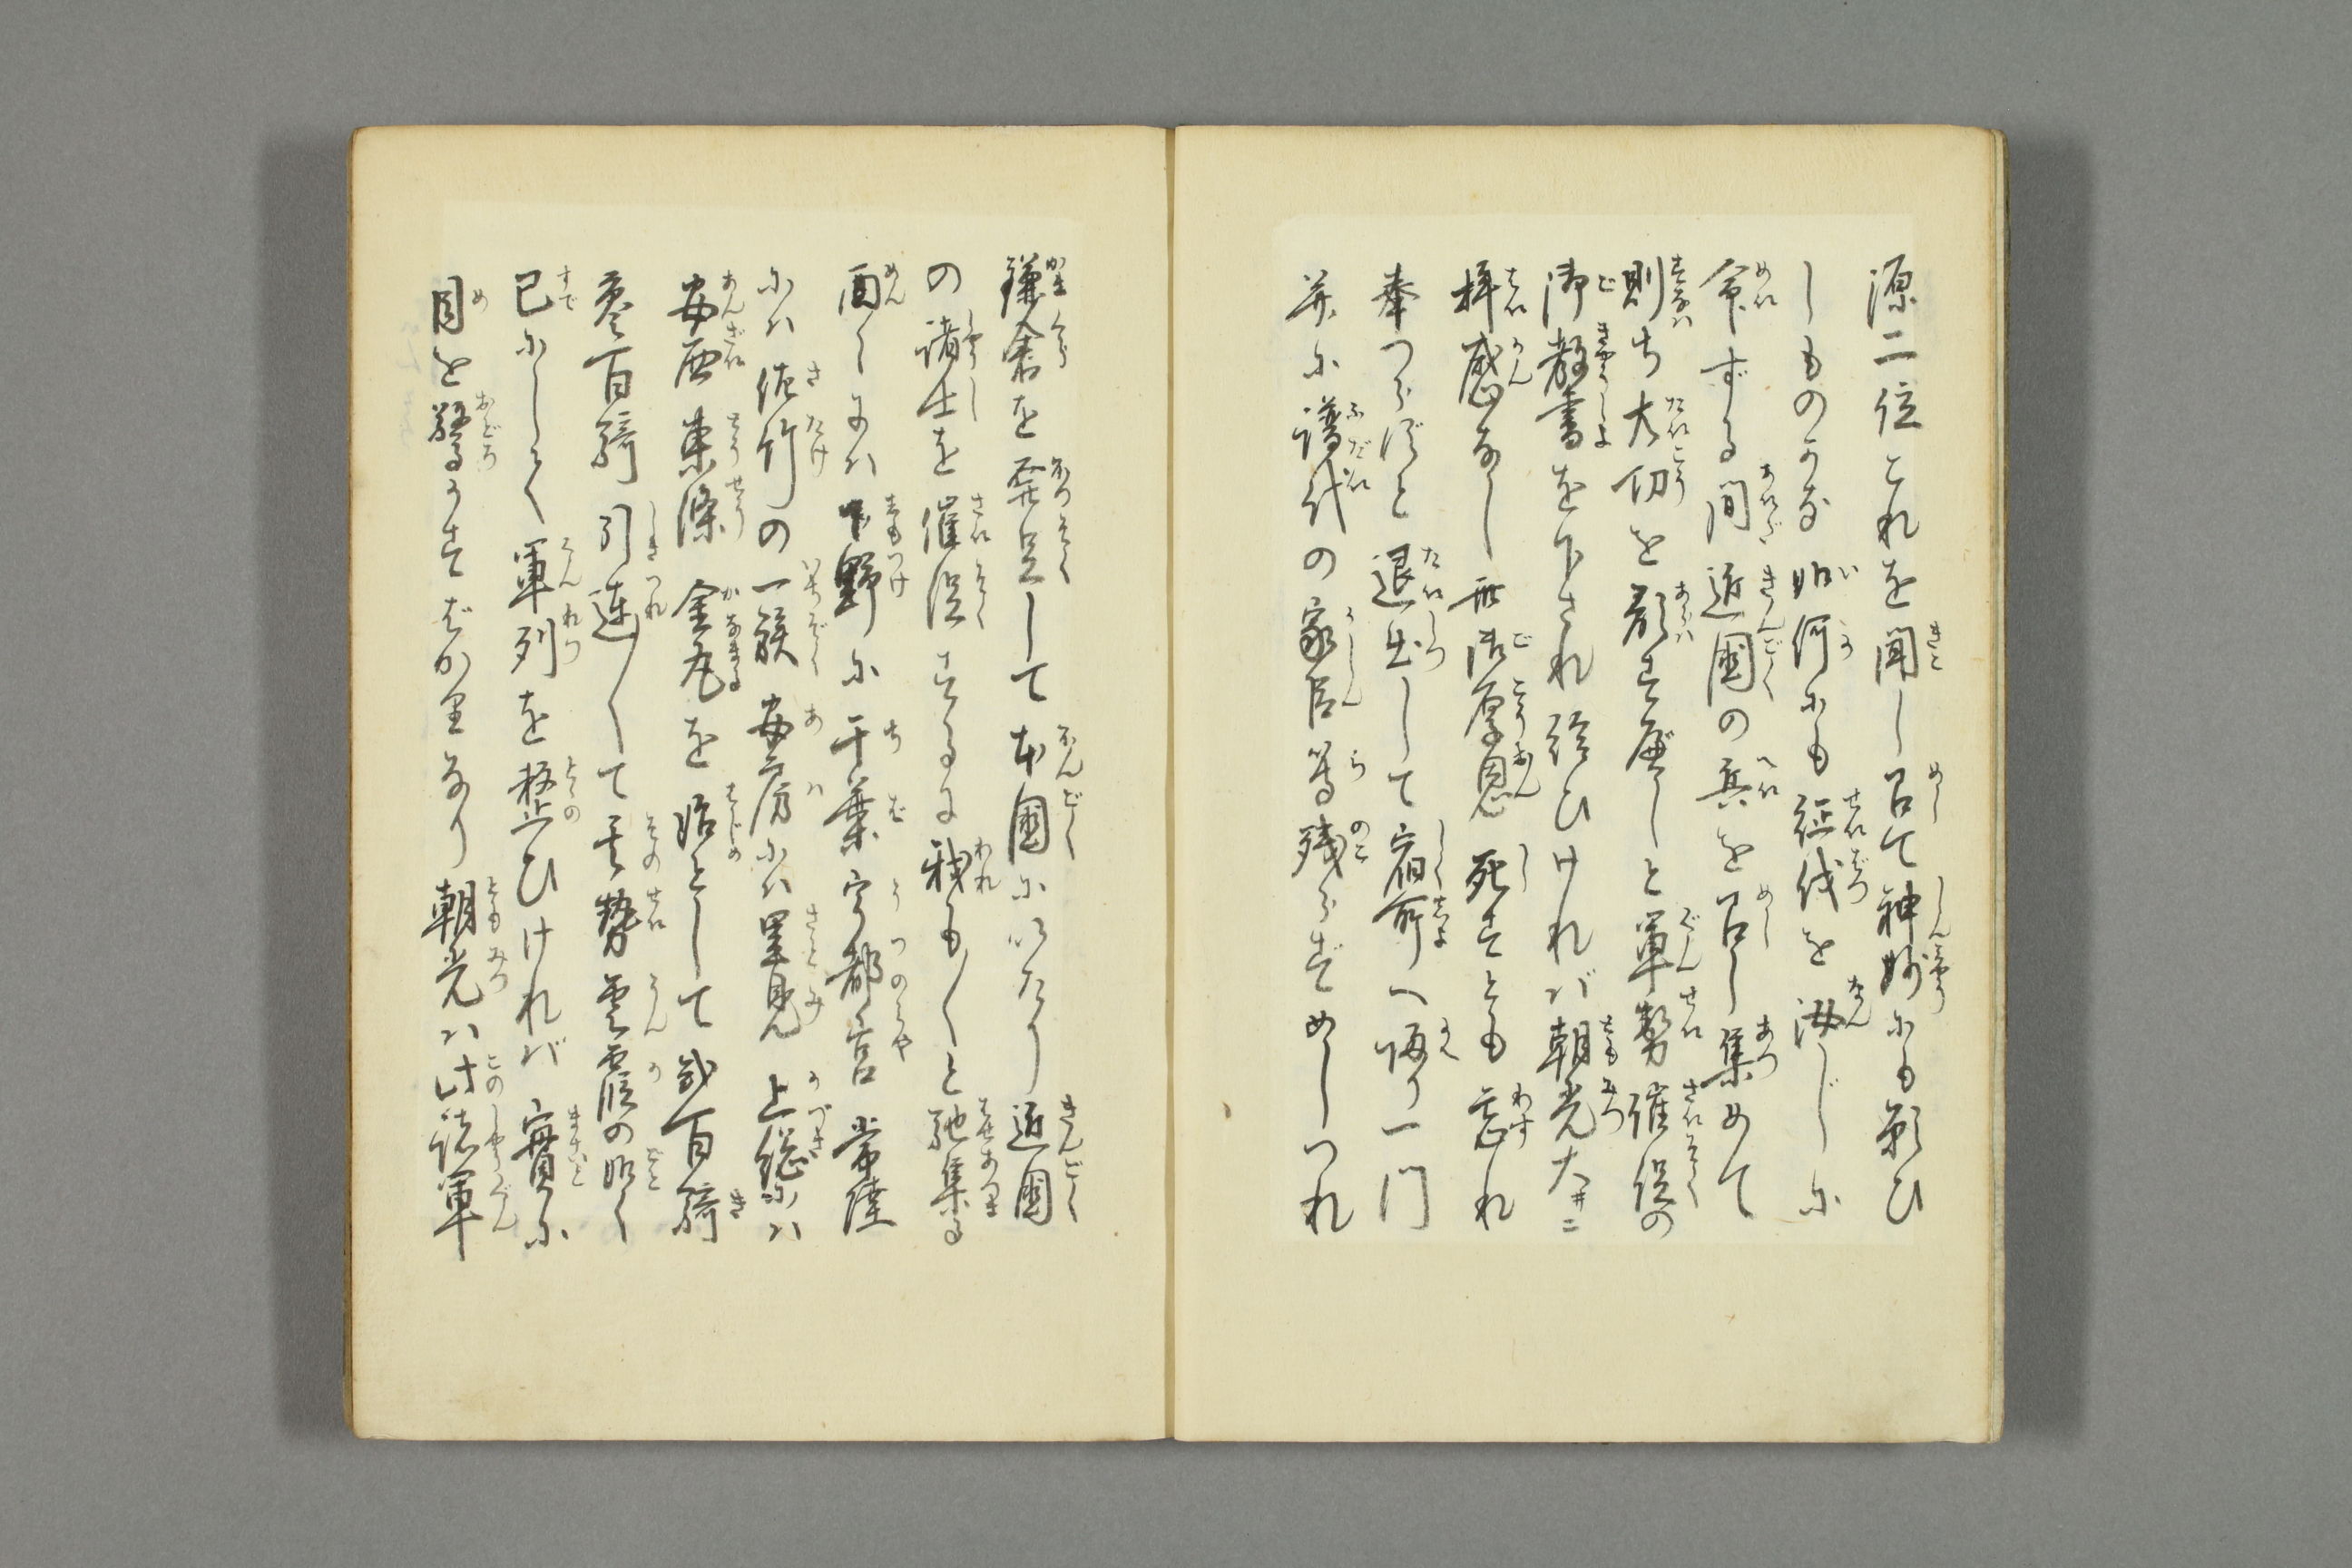 源二位これを聞し召て神妙にも願ひ
しものかな如何にも征伐を汝じに
命ずる間近國の兵を召し集めて
則ち大切を顕す應しと軍勢催促の
御教書を下され給ひければ朝光大井ニ
拝感なし此御厚恩死すとも忘れ
奉つらずと退出して宿所へ帰り一門
并に譜代の家臣等残らずめしつれ
鎌倉を發足して本國にいたり近國
の諸士を催促するに我も〳〵と馳集る
面〻には下野に千葉宇都宮常陸
には佐竹の一族安房には里見上総には
安西東條金丸を始として或百騎
参百騎引連〳〵て其勢雲霞の如く
已にして軍列を整ひければ實に
目を驚かすばかりなり朝光は此諸軍